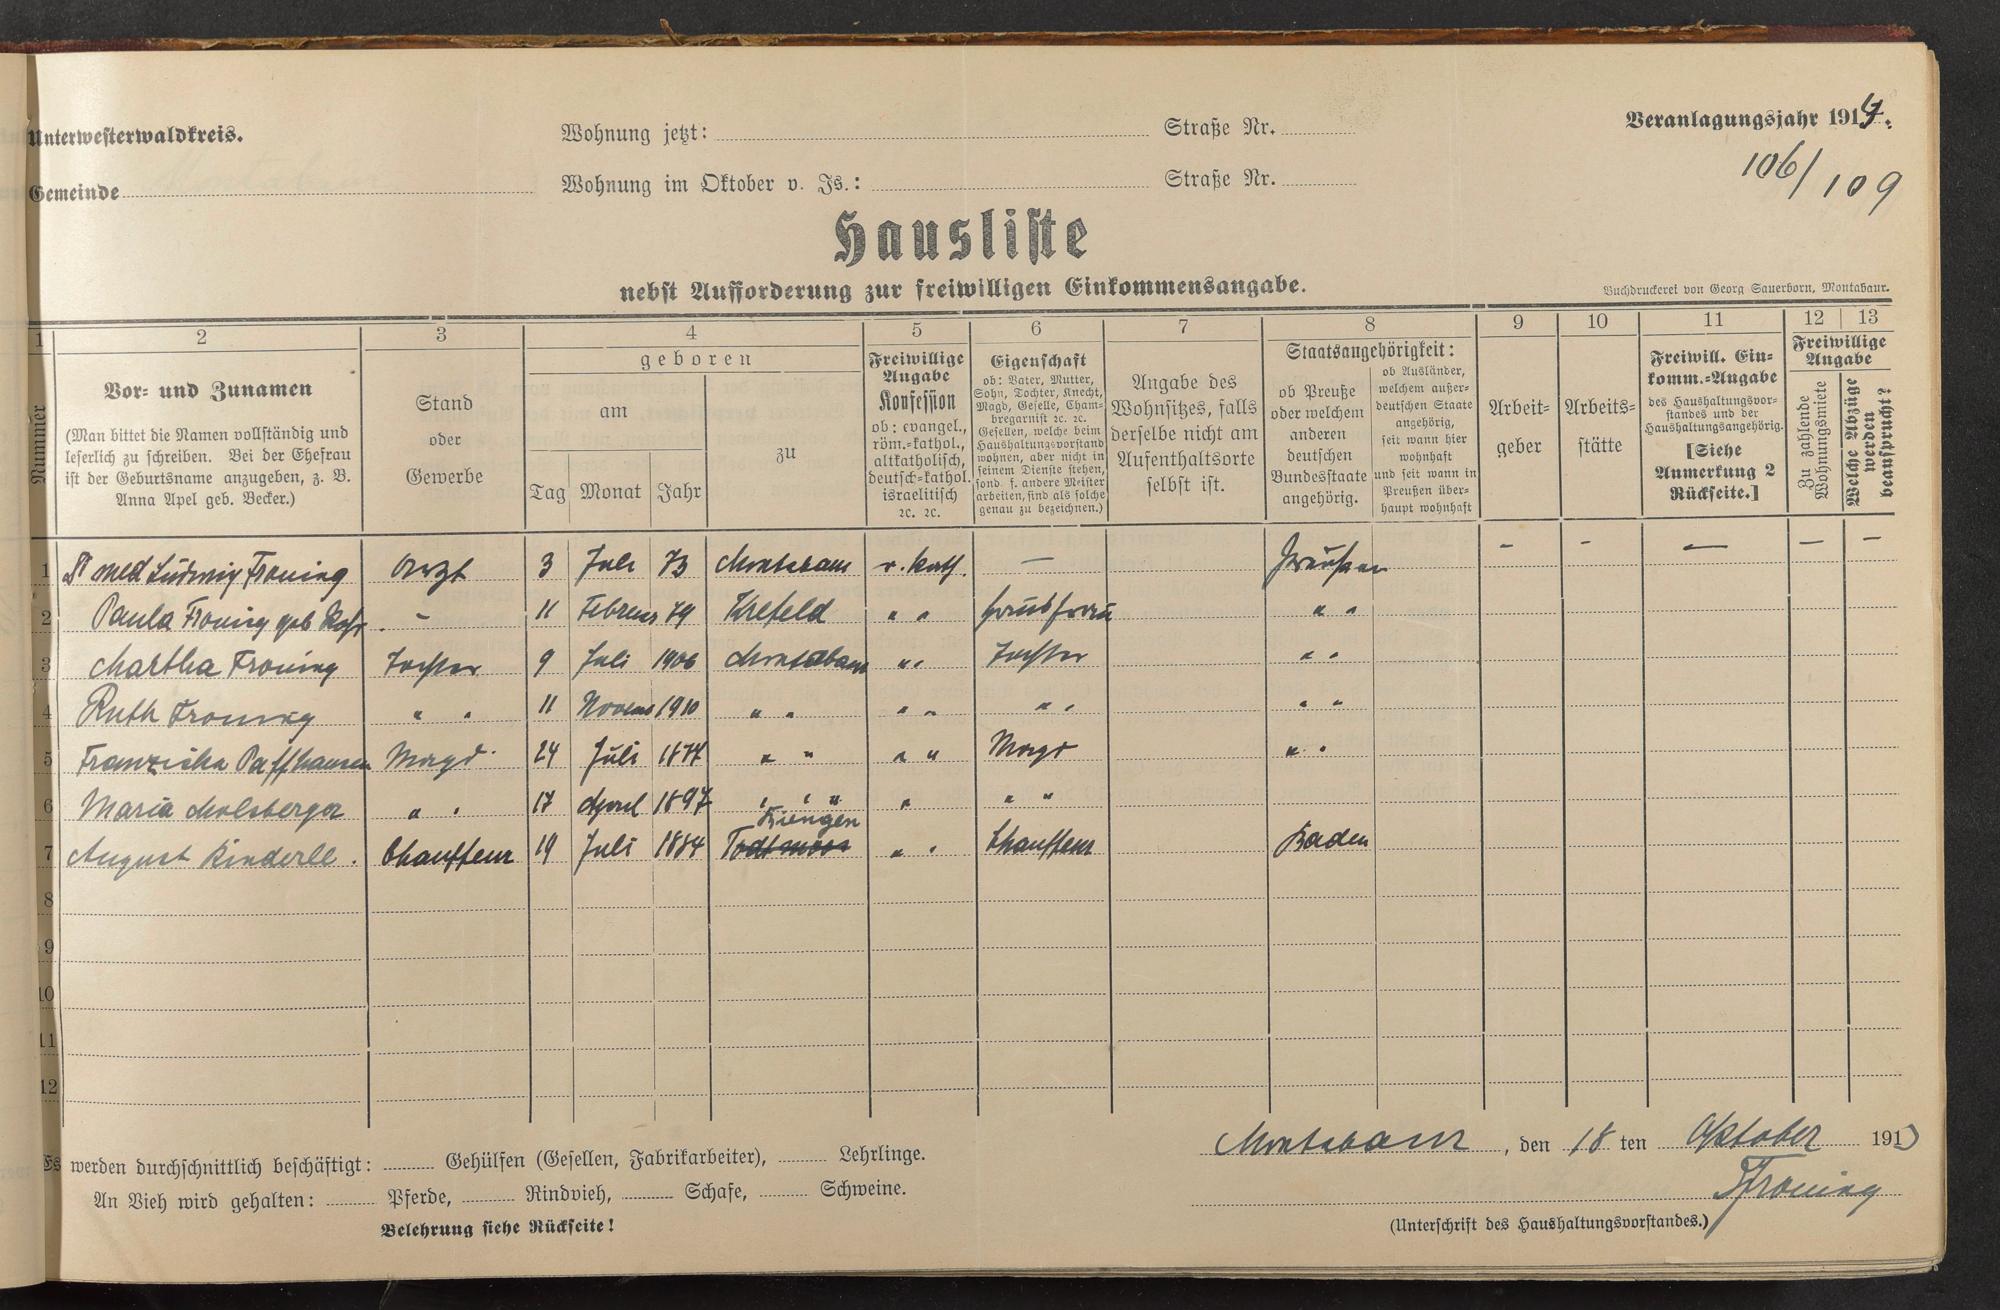 Unterwesterwaldkreis.
Wohnung jetzt: Straße Nr.
Veranlagungsjahr 1914.
106/109
Gemeinde
Wohnung im Oktober v. Js.: Straße Nr.
Hausliste
nebst Aufforderung zur freiwilligen Einkommensangabe.
Buchdruckerei von Georg Sauerborn, Montabaur.
1 2 3 4 5 6 7 8 9 10 11 12 13
Nummer
Vor- und Zunamen
(Man bittet die Namen vollständig und
leserlich zu schreiben. Bei der Ehefrau
ist der Geburtsname anzugeben, z. B.
Anna Apel geb. Becker.)
Stand
oder
Gewerbe
geboren
am
Tag Monat Jahr
zu
Freiwillige
Angabe
Konfession
ob: evangel.,
röm.-kathol.,
altkatholisch,
deutsch-kathol.
israelitisch
ꝛc. ꝛc.
Eigenschaft
ob: Vater, Mutter,
Sohn, Tochter, Knecht,
Magd, Geselle, Cham-
bregarnist ꝛc. ꝛc.
Gesellen, welche beim
Haushaltungsvorstand
wohnen, aber nicht in
seinem Dienste stehen,
sond. f. andere Meister
arbeiten, sind als solche
genau zu bezeichnen.)
Angabe des
Wohnsitzes, falls
derselbe nicht am
Aufenthaltsorte
selbst ist.
Staatsangehörigkeit:
ob Preuße
oder welchem
anderen
deutschen
Bundesstaate
angehörig.
ob Ausländer,
welchem außer-
deutschen Staate
angehörig,
seit wann hier
wohnhaft
und seit wann in
Preußen über-
haupt wohnhaft
Arbeit-
geber
Arbeits-
stätte
Freiwill. Ein-
komm.-Angabe
des Haushaltungsvor-
standes und der
Haushaltungsangehörig.
[Siehe
Anmerkung 2
Rückseite.]
Freiwillige
Angabe
Zu zahlende
Wohnungsmiete
Welche Abzüge
werden
beansprucht?
1 Dr med Ludwig Froning Arzt 3 Juli 73 Montabaur r. kath. — Preußen - - — — —
2 Paula Froning geb - 11 Februar 79 Krefeld " " Hausfrau " "
3 Martha Froning Tochter 9 Juli 1906 Montabaur " " Tochter " "
4 Ruth Froning " " 11 Novem 1910 " " " " " " " "
5 Franziska Paffhausen Magd 24 Juli 1874 " " " " Magd " "
6 Maria Molsberger " " 17 April 1897 " " " " " "
Tiengen
7 August Kinderle. Chauffeur 19 Juli 1884 Todtmoos " " Chauffeur Baden
8
9
10
11
12
Montabaur, den 18 ten Oktober 1913
Es werden durchschnittlich beschäftigt: Gehülfen (Gesellen, Fabrikarbeiter), Lehrlinge.
An Vieh wird gehalten: Pferde, Rindvieh, Schafe, Schweine.
Froning
Belehrung siehe Rückseite!
(Unterschrift des Haushaltungsvorstandes.)